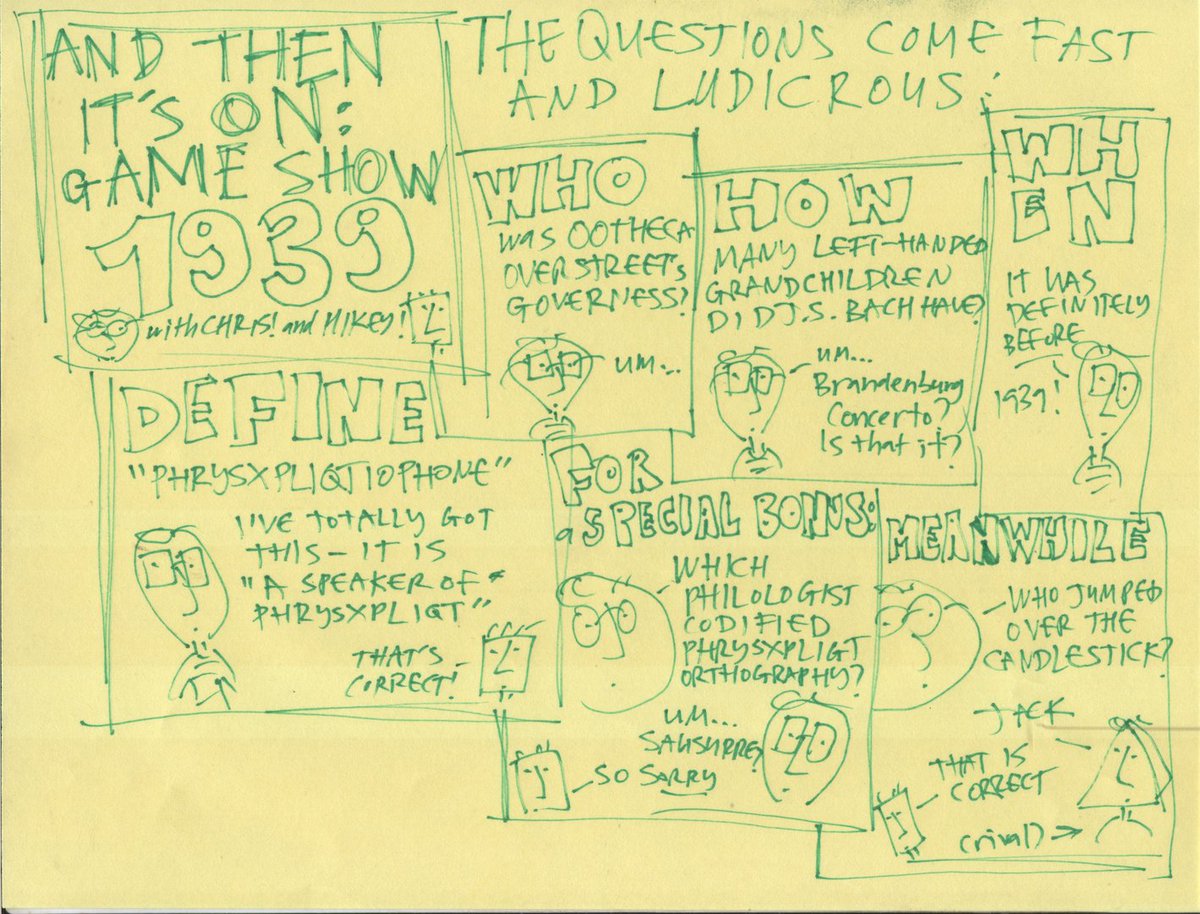 AND THEN
IT'S ON:
GAME SHOW
1939
with CHRIS! and MIKEY!
THE QUESTIONS COME FAST
AND LUDICROUS:
WHO
WAS OOTHECA
OVERSTREET'S
GOVERNESS?
UM...
HOW
MANY LEFT-HANDED
GRANDCHILDREN
DID J.S. BACH HAVE?
UM...
Brandenburg
Concerto?
Is that it?
WH
EN
IT WAS
DEFINITELY
BEFORE
1939!
DEFINE
"PHRYSXPLIQTIOPHONE"
I'VE TOTALLY GOT
THIS - IT IS
"A SPEAKER OF
PHRYSXPLIQT"
THAT'S
CORRECT!
FOR
a SPECIAL BONUS:
WHICH
PHILOLOGIST
CODIFIED
PHRYSXPLIGT
ORTHOGRAPHY?
UM...
SAUSURRE?
SO SARRY
MEANWHILE
WHO JUMPED
OVER THE
CANDLESTICK?
JACK
THAT IS
CORRECT
(rival)